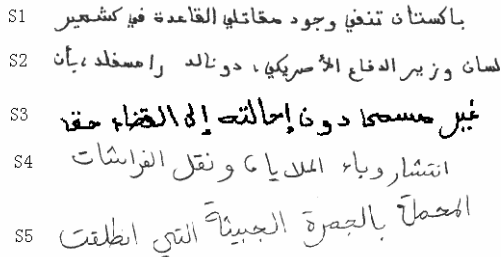 S1 باكستان تنفي وجود مقاتلي القاعدة في كشمير
S2 لسان وزير الدفاع الأمريكي، دونالد رامسفلد، بأن
S3 غير مسمى دون إحالته إلى القضاء حقه
S4 انتشار وباء الملاريا، ونقل الفراشات
S5 المحملة بالجمرة الخبيثة التي انطلقت